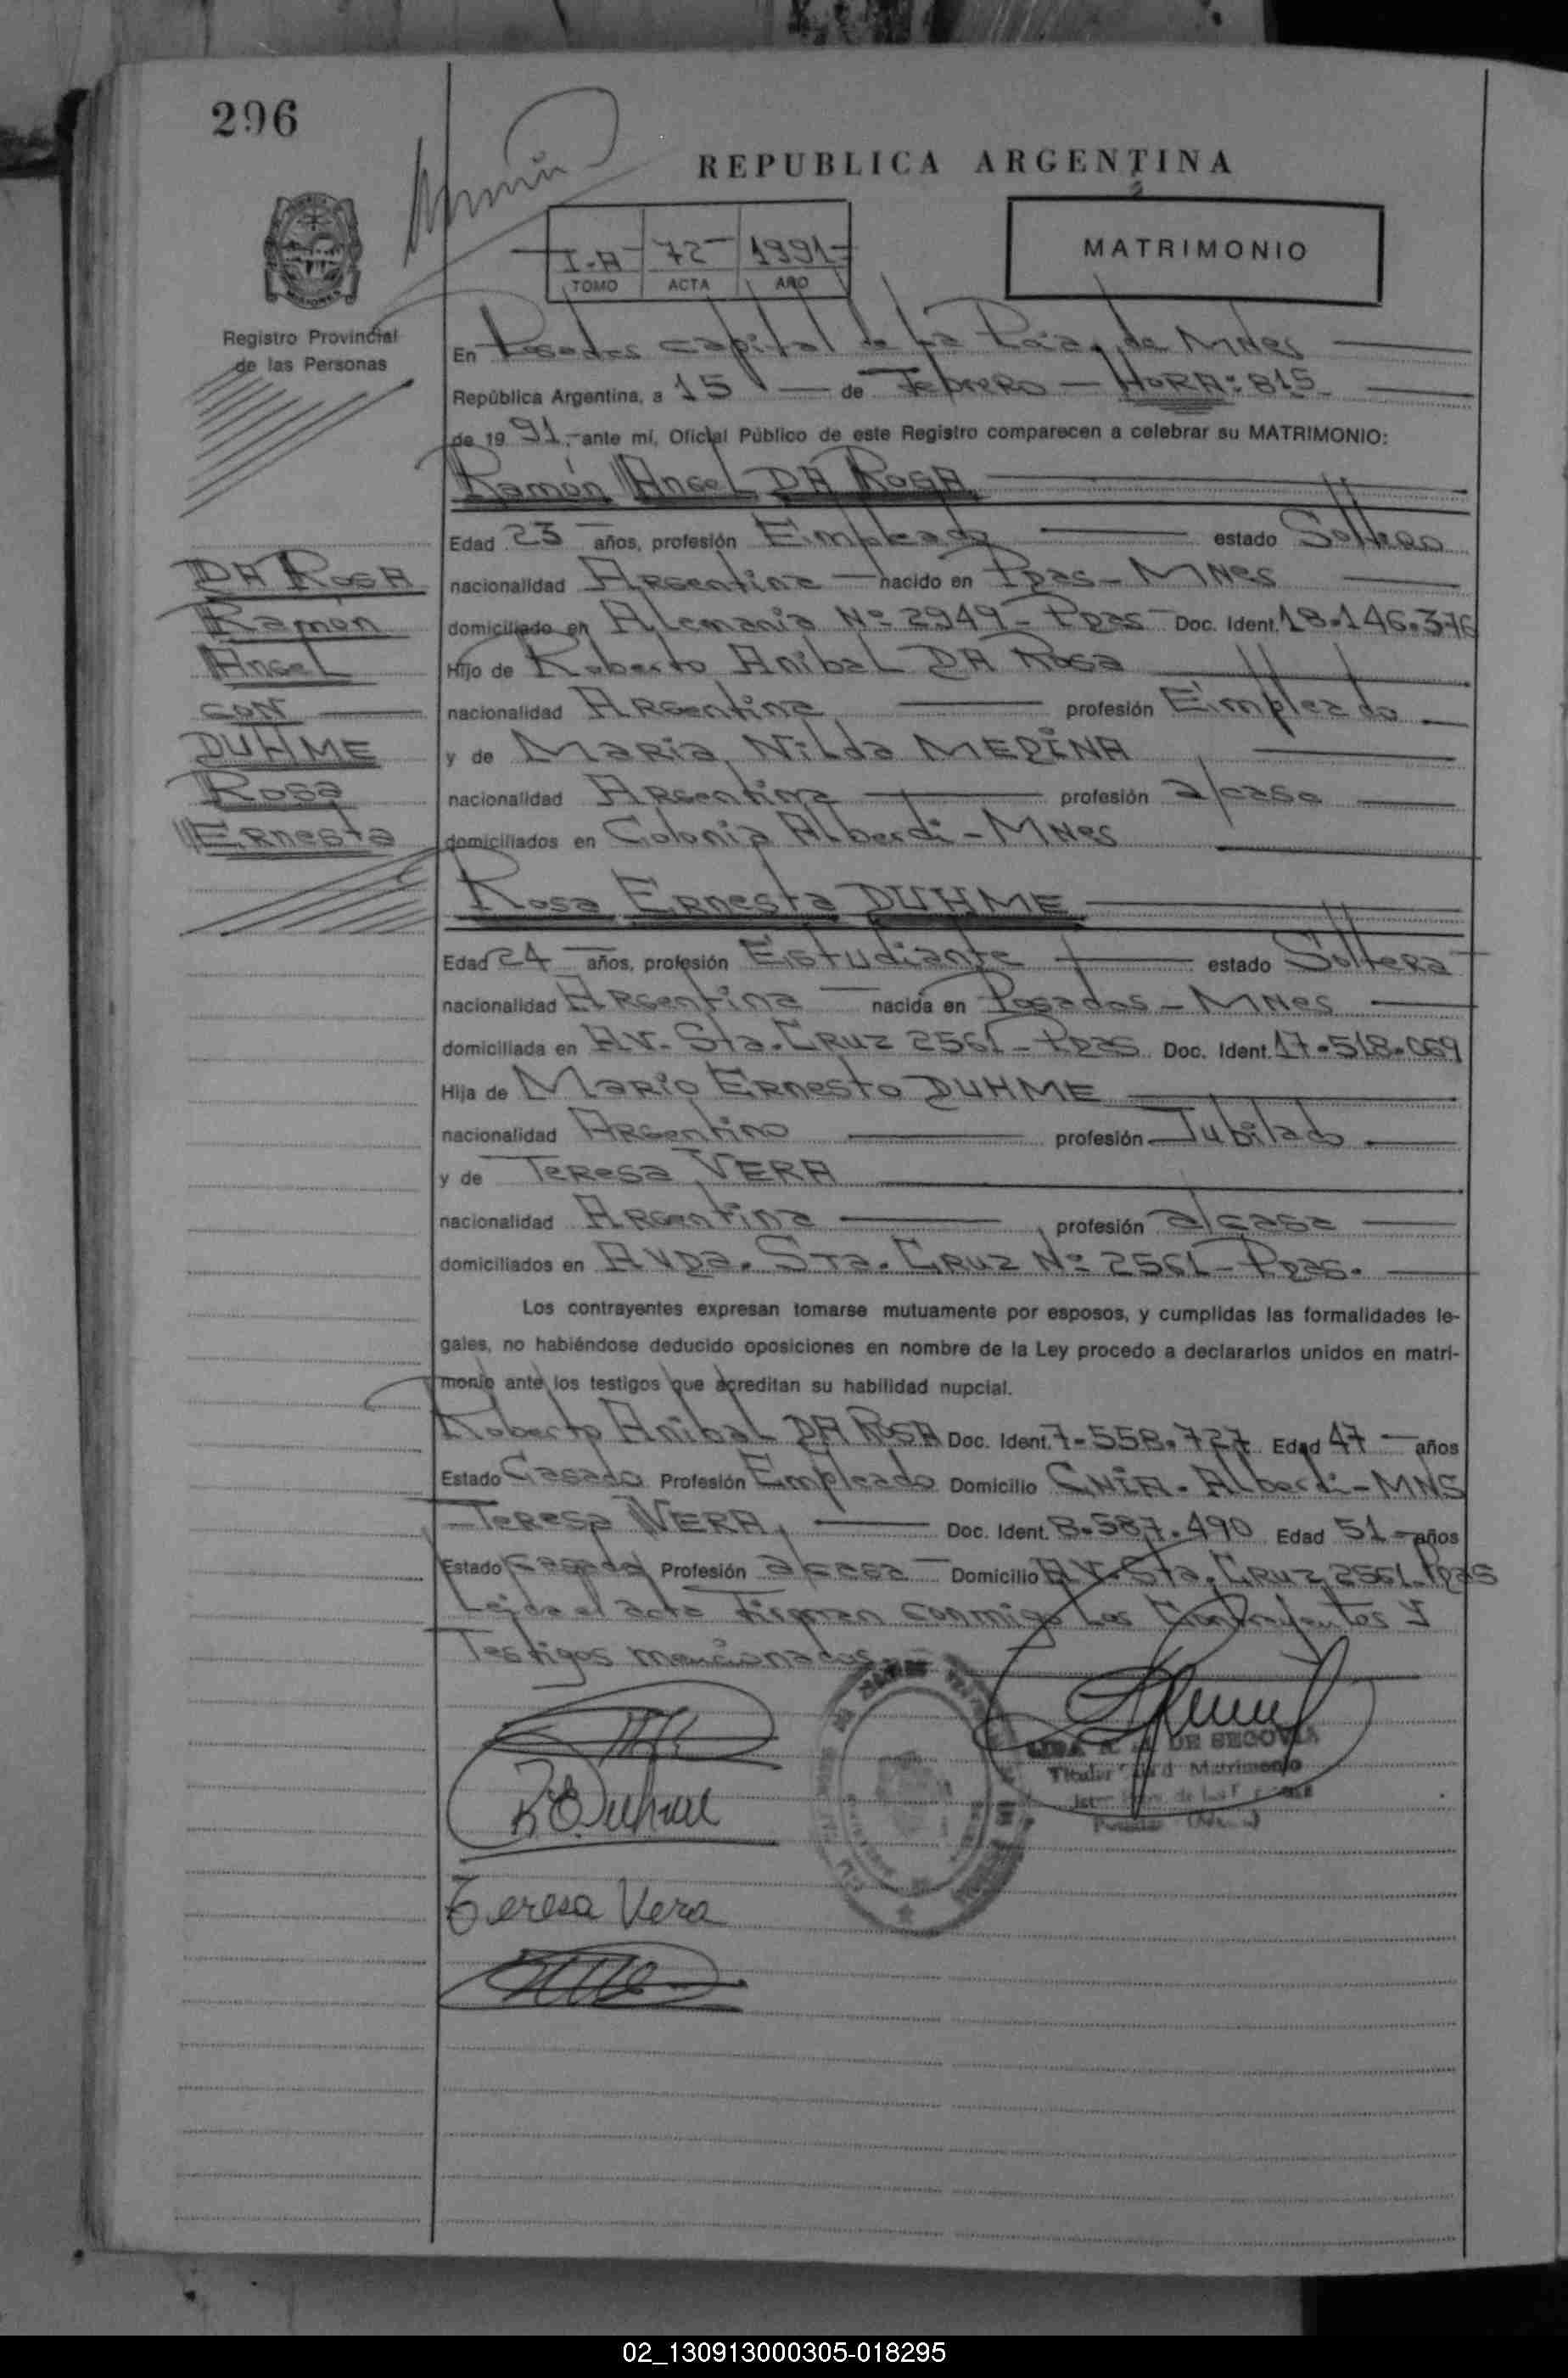 296
REPUBLICA ARGENTINA
I-A 72 1991
TOMO ACTA AÑO
MATRIMONIO
Registro Provincial
de las Personas
En Posadas capital de la Pcia. de MNes
República Argentina, a 15 de Febrero HORA: 815
de 1991, ante mí, Oficial Público de este Registro comparecen a celebrar su MATRIMONIO:
Ramón Angel DA ROSA
Edad 23 años, profesión Empleado estado Soltero
DA ROSA
nacionalidad Argentina nacido en Pdas-MNes
Ramón
domiciliado en Alemania Nº 2949-Pdas Doc. Ident. 18.146.376
Angel
Hijo de Roberto Anibal DA Rosa
nacionalidad Argentina profesión Empleado
CON
DUHME
y de Maria Nilda MEDINA
Rosa
nacionalidad Argentina profesión a/casa
Ernesta
domiciliados en Colonia Alberdi-MNes
Rosa Ernesta DUHME
Edad 24 años, profesión Estudiante estado Soltera
nacionalidad Argentina nacida en Posadas-MNes
domiciliada en AV. Sta. Cruz 2561-Pdas Doc. Ident. 17.518.069
Hija de Mario Ernesto DUHME
nacionalidad Argentino profesión Jubilado
y de Teresa VERA
nacionalidad Argentina profesión a/casa
domiciliados en AVda. Sta. Cruz Nº 2561-Pdas.
Los contrayentes expresan tomarse mutuamente por esposos, y cumplidas las formalidades le-
gales, no habiéndose deducido oposiciones en nombre de la Ley procedo a declararlos unidos en matri-
monio ante los testigos que acreditan su habilidad nupcial.
Roberto Anibal DA ROSA Doc. Ident. 7.558.727 Edad 47 años
Estado Casado Profesión Empleado Domicilio CNIA. Alberdi-MNS
Teresa VERA Doc. Ident. 8.587.490 Edad 51 años
Estado Casada Profesión a/casa Domicilio AV. Sta. Cruz 2561-Pdas
Leida el acta Firman conmigo Los Contrayentes Y
Testigos mencionados
DE SEGOVIA
Titular Matrimonio
R E Duhme
Teresa Vera
02_130913000305-018295